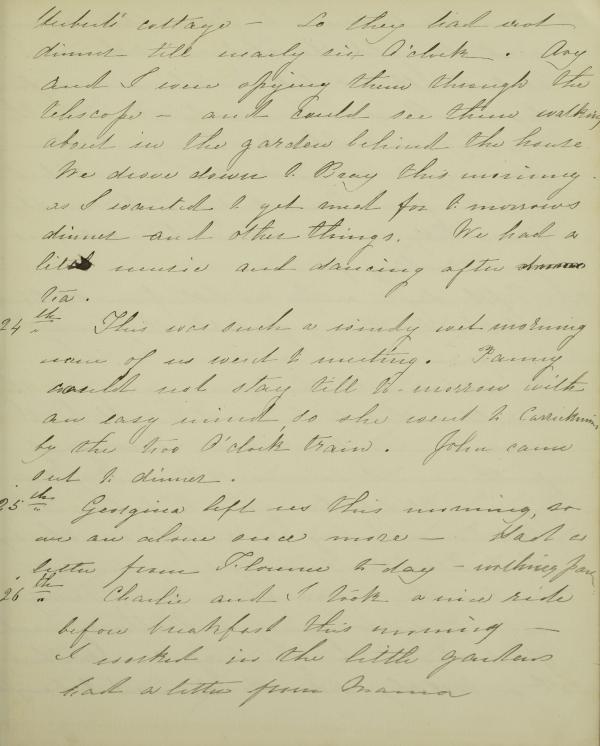 Huberts cottage - So they had not
dinner till nearly six O'clock. Avy
and I were spying them through the
telescope - and could see them walking
about in the garden behind the house
We drove down to Bray this morning.
as I wanted to get meat for to morrows
dinner and other things. We had a
little music and dancing after
tea.
24th This was such a windy wet morning
none of us went to meeting. Fanny
could not stay till to-morrow with
an easy mind, so she went to
by the two O'clock train. John came
out to dinner.
25th Georgina left us this morning, so
we are alone once more - Had a
letter from Florence to day -
26th Charlie and I took a nice ride
before breakfast this morning -
I worked in the little gardens
had a letter from Mama